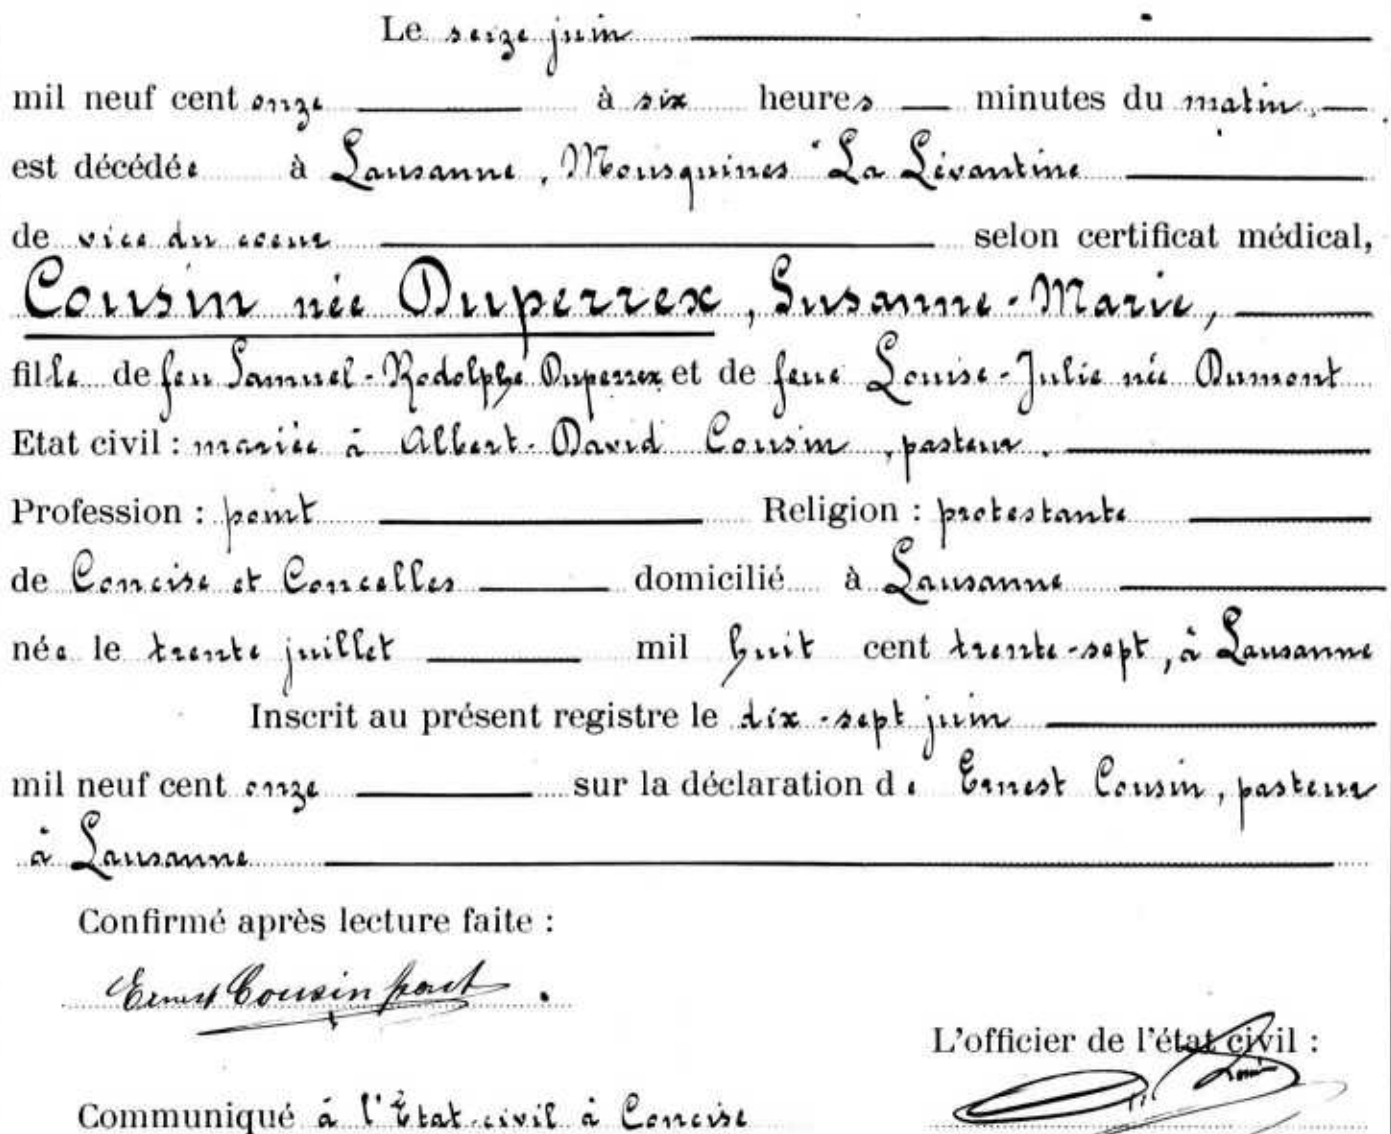 Le seize juin
mil neuf cent onze à six heures minutes du matin,
est décédée à Lausanne, Mousquines "La Lévantine
de vice du coeur selon certificat médical,
Cousin née Duperrex, Susanne-Marie,
fille de feu Samuel-Rodolphe Duperrex et de feue Louise-Julie née Dumont
Etat civil : mariée à Albert-David Cousin, pasteur,
Profession : point Religion : protestante
de Concise et Concelles domicilié à Lausanne
née le trente juillet mil huit cent trente-sept, à Lausanne
Inscrit au présent registre le dix-sept juin
mil neuf cent onze sur la déclaration de Ernest Cousin, pasteur
à Lausanne
Confirmé après lecture faite :
Ernest Cousin past
L'officier de l'état civil :
Communiqué à l'Etat-civil à Concise